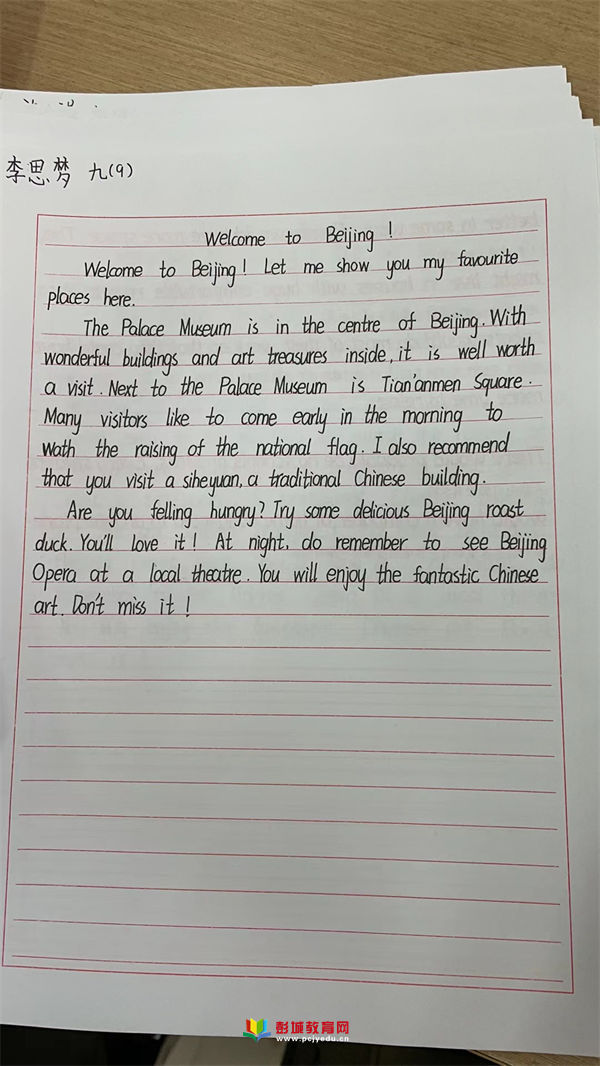 李思梦 九(9)
Welcome to Beijing!
Welcome to Beijing! Let me show you my favourite
places here.
The Palace Museum is in the centre of Beijing. With
wonderful buildings and art treasures inside, it is well worth
a visit. Next to the Palace Museum is Tian'anmen Square.
Many visitors like to come early in the morning to
wath the raising of the national flag. I also recommend
that you visit a siheyuan, a traditional Chinese building.
Are you felling hungry? Try some delicious Beijing roast
duck. You'll love it! At night, do remember to see Beijing
Opera at a local theatre. You will enjoy the fantastic Chinese
art. Don't miss it!
彭城教育网
www.pcjyedu.cn